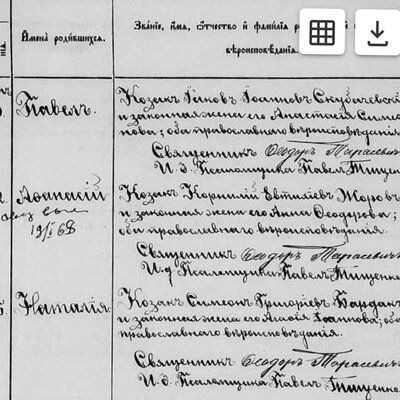 Званіе, имя, отчество и фамилія
Имена родившихся.
вѣроисповѣданія.
Павелъ.
Козакъ Іаковъ Іоанновъ
и законная жена его Анастасія
оба православнаго вѣроисповѣданія
Священникъ Ѳеодоръ Тарасевичъ
И. д. Псаломщика Павелъ Тищенко
Аѳанасій
19/I 68
Козакъ Корнилій Евтихіевъ
и законная жена его Анна Ѳеодорова;
оба православнаго вѣроисповѣданія.
Священникъ Ѳеодоръ Тарасевичъ
И. д. Псаломщика Павелъ Тищенко
Наталія.
Козакъ Симеонъ Григоріевъ
и законная жена его Іоаннова;
православнаго вѣроисповѣданія.
Священникъ Ѳеодоръ Тарасевичъ
И. д. Псаломщика Павелъ Тищенко